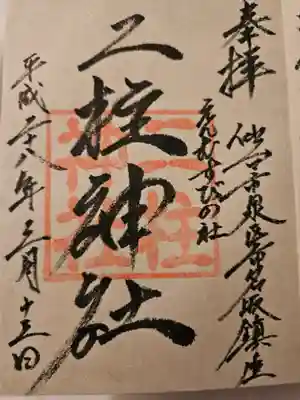 奉拝
仙台市泉区市名坂鎮座
えんむすびの社
二柱神社
二柱神社
平成二十八年三月十三日